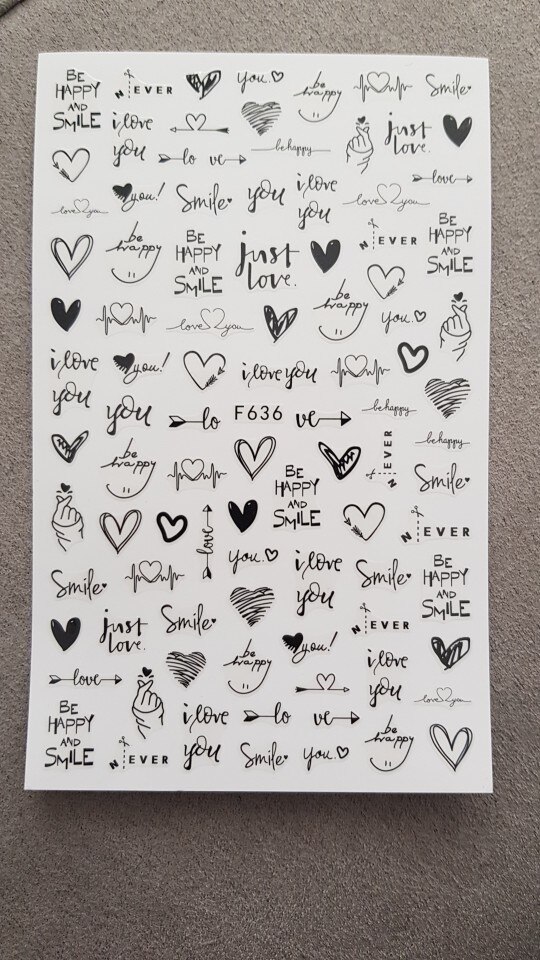 BE
HAPPY
AND
SMILE
N EVER
you.
be
happy
Smile
i love
you
just
love.
lo ve
be happy
love
love you
you!
Smile
you
i love
you
love you
N EVER
BE
HAPPY
AND
SMILE
be
happy
BE
HAPPY
AND
SMILE
just
love.
love you
be
happy
you.
i love
you
you!
i love you
you
lo
F636
ve
be happy
N EVER
be happy
be
happy
BE
HAPPY
AND
SMILE
Smile
love
N EVER
Smile
you.
i love
you
Smile
BE
HAPPY
AND
SMILE
just
love.
Smile
N EVER
be
happy
you!
i love
you
love
love you
BE
HAPPY
AND
SMILE
N EVER
i love
you
lo ve
Smile
you.
be
happy